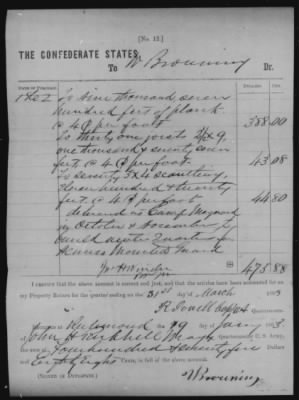 [No. 12.]
THE CONFEDERATE STATES,
To W Browning Dr.
DATE OF PURCHASE. DOLLARS. CTS.
1862 To nine thousand seven
hundred feet of plank
@ 4¢ per foot 388.00
To thirty one joists 2/6x9
one thousand & seventy seven
feet @ 4¢ per foot 43.08
To seventy 3x4 scantling,
eleven hundred & twenty
feet @ 4¢ per foot 44.80
delivered at Camp
in October & November
quarters for
Mounted Guard
475.88
I certify that the above account is correct and just, and that the articles have been accounted for on
my Property Return for the quarter ending on the 31st day of March 1863
R Powell Capt
Quartermaster.
Richmond on 29 day of Jany 1863
John H
Quartermaster C. S. Army,
the sum of Four hundred & seventy five Dollars
and Eighty eight Cents, in full of the above account.
(SIGNED IN DUPLICATE.)
W Browning